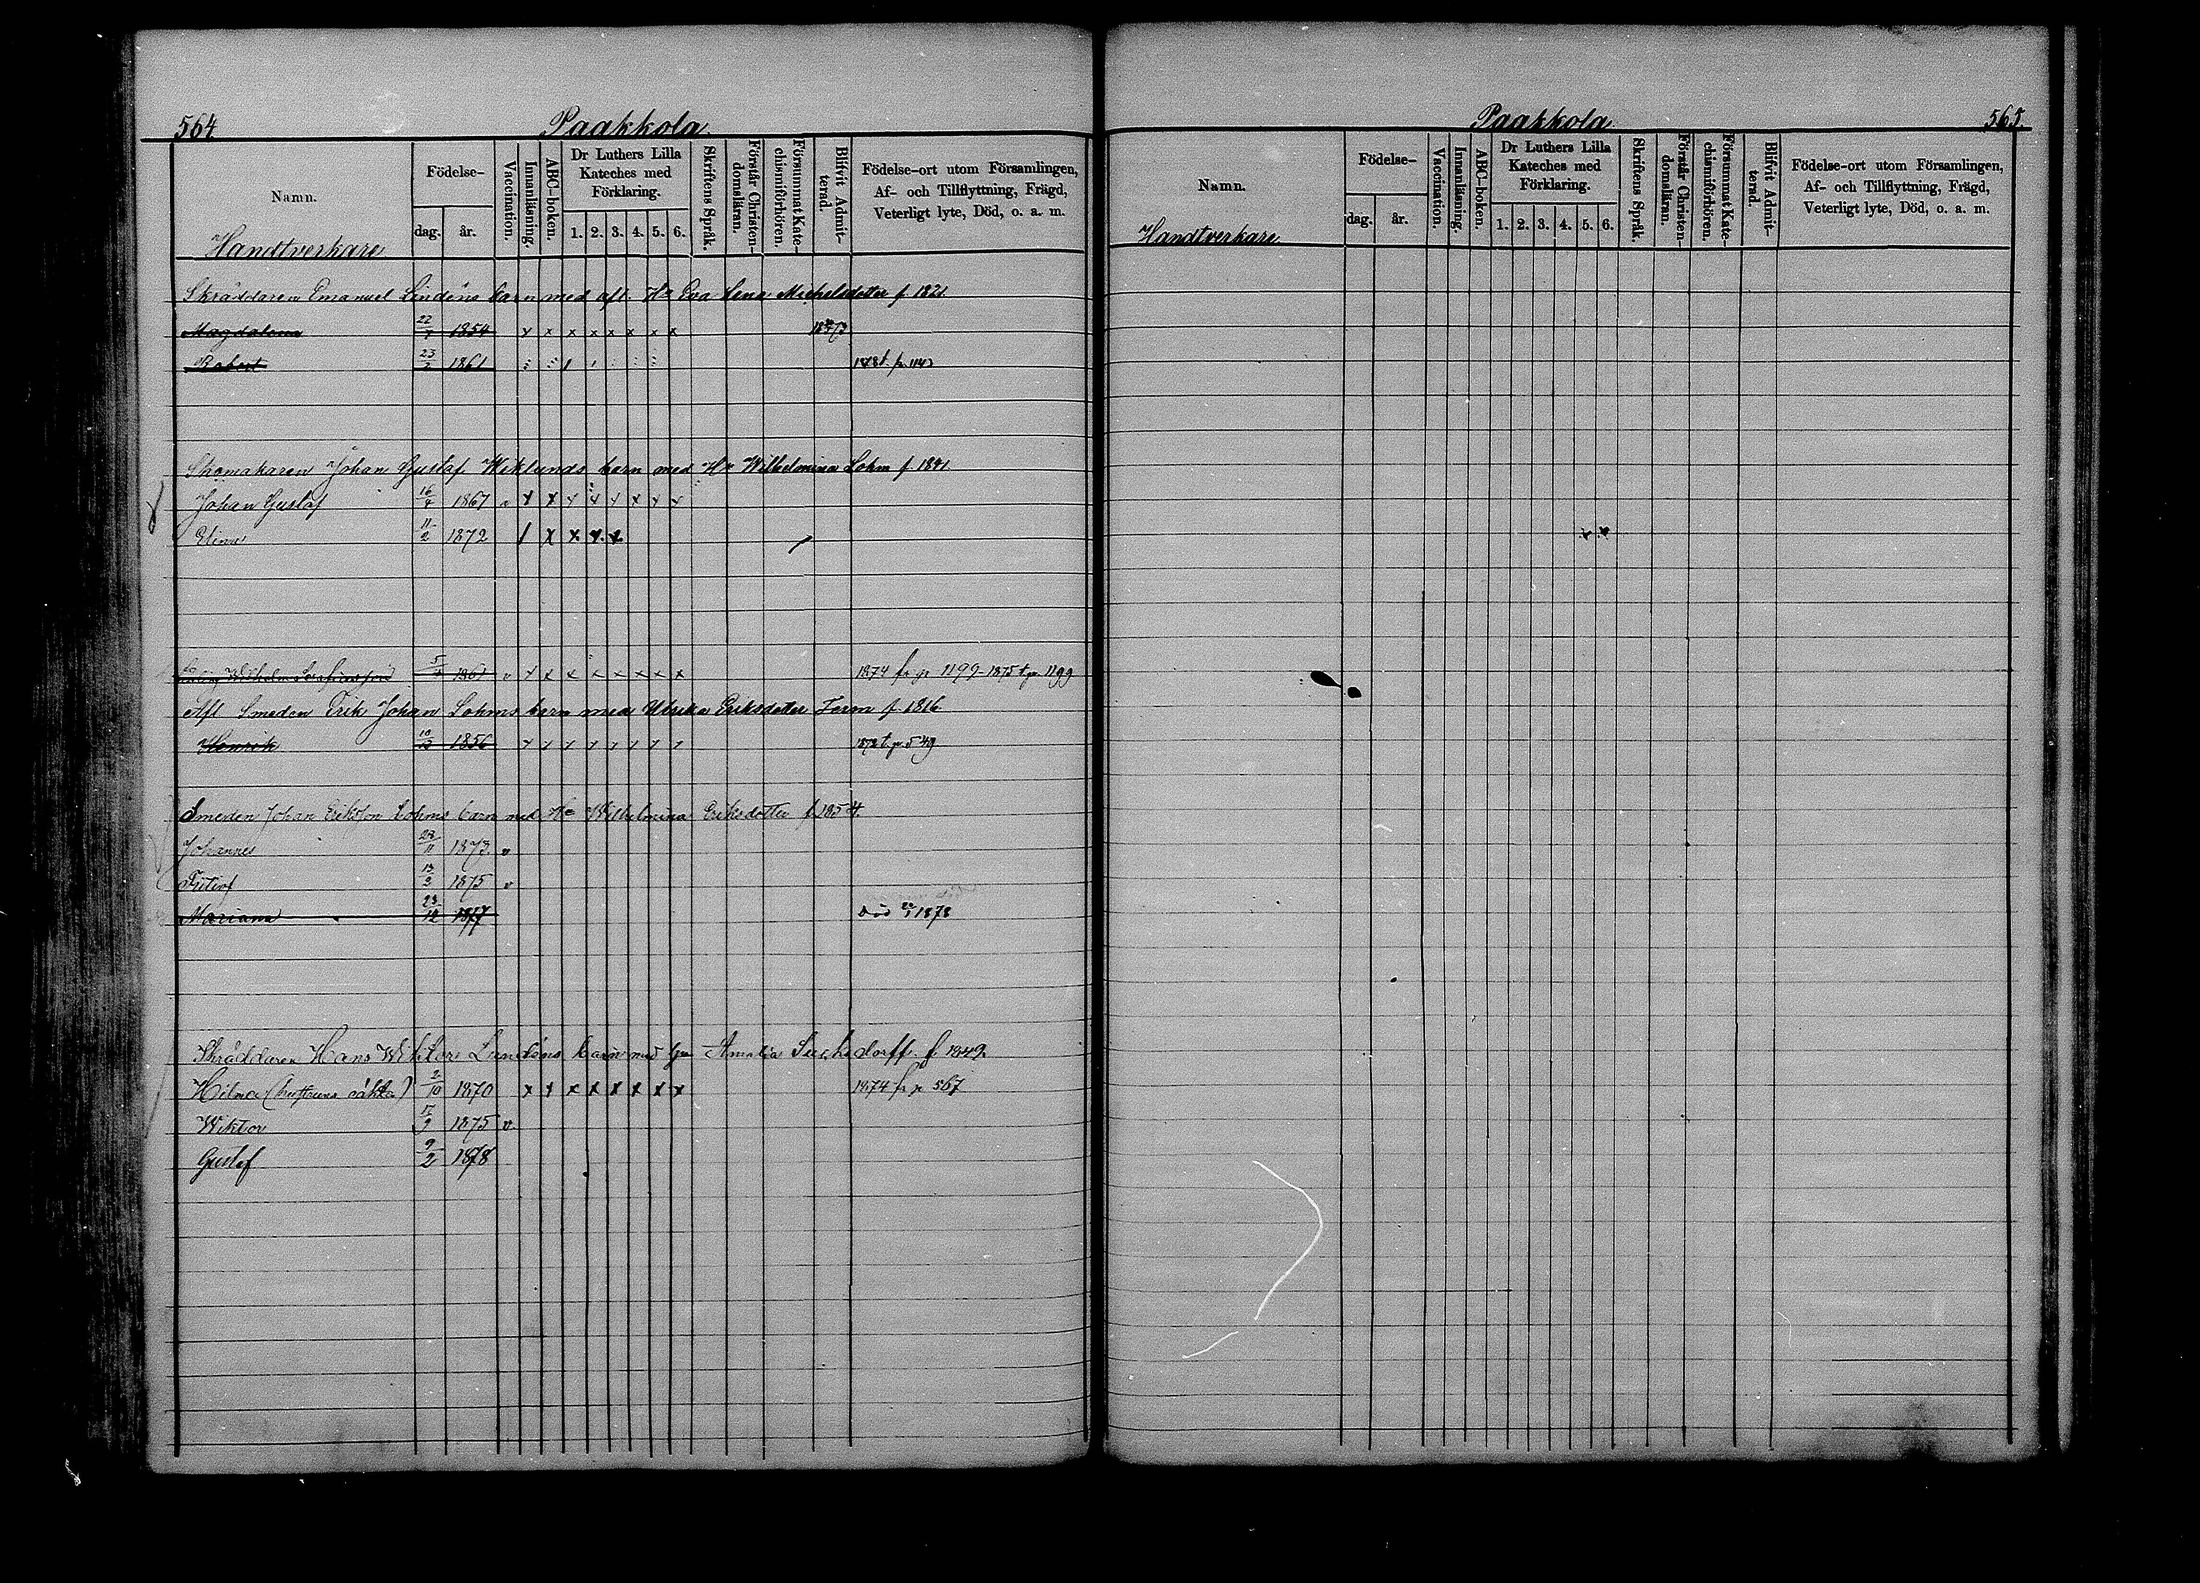 564 Paakkola
Namn. Födelse- dag. år. Vaccination. Innanläsning. ABC-boken. Dr Luthers Lilla Kateches med Förklaring. 1. 2. 3. 4. 5. 6. Skriftens Språk. Förstår Christendomsläran. Försummat Katechismiförhören. Blifvit Admitterad. Födelse-ort utom Församlingen, Af- och Tillflyttning, Frägd, Veterligt lyte, Död, o. a. m.
Handtverkare
Skräddaren Emanuel Lindéns barn med aft. Hu Eva Lena Michelsdotter f. 1821
Magdalena 22 1854 x x x x x x x x 1873
Robert 23 1861
Skomakaren Johan Gustaf Wiklunds barn med Hu Wilhelmina Lohm f. 1841
Johan Gustaf 16/4 1867 v x x x x x x x x
Elina 11/2 1872 / x x x x
Wilhelm 5 v x x x x x x x x 1874 fr p 1199 - 1875 t p 1199
Afl Smeden Erik Johan Lohms barn med Ulrika Eriksdotter Ferm f. 1816
Henrik 10/12 1856 t p 549
Smeden Johan Erikson Lohms barn med Hu Wilhelmina Eriksdotter f. 1854.
Johannes 28/11 1873 v
Fritiof 13/3 1875 v
Mariana 23/12 1877 Död 1878
Skräddaren Hans Wiktor Lundéns barn med Amalia f. 1849
Hilma (hustruns oäkta) 2/10 1870 x x x x x x x x 1874 fr p 567
Wiktor 17/9 1875 v
Gustaf 9/2 1878
Paakkola 565.
Namn. Födelse- dag. år. Vaccination. Innanläsning. ABC-boken. Dr Luthers Lilla Kateches med Förklaring. 1. 2. 3. 4. 5. 6. Skriftens Språk. Förstår Christendomsläran. Försummat Katechismiförhören. Blifvit Admitterad. Födelse-ort utom Församlingen, Af- och Tillflyttning, Frägd, Veterligt lyte, Död, o. a. m.
Handtverkare
x x